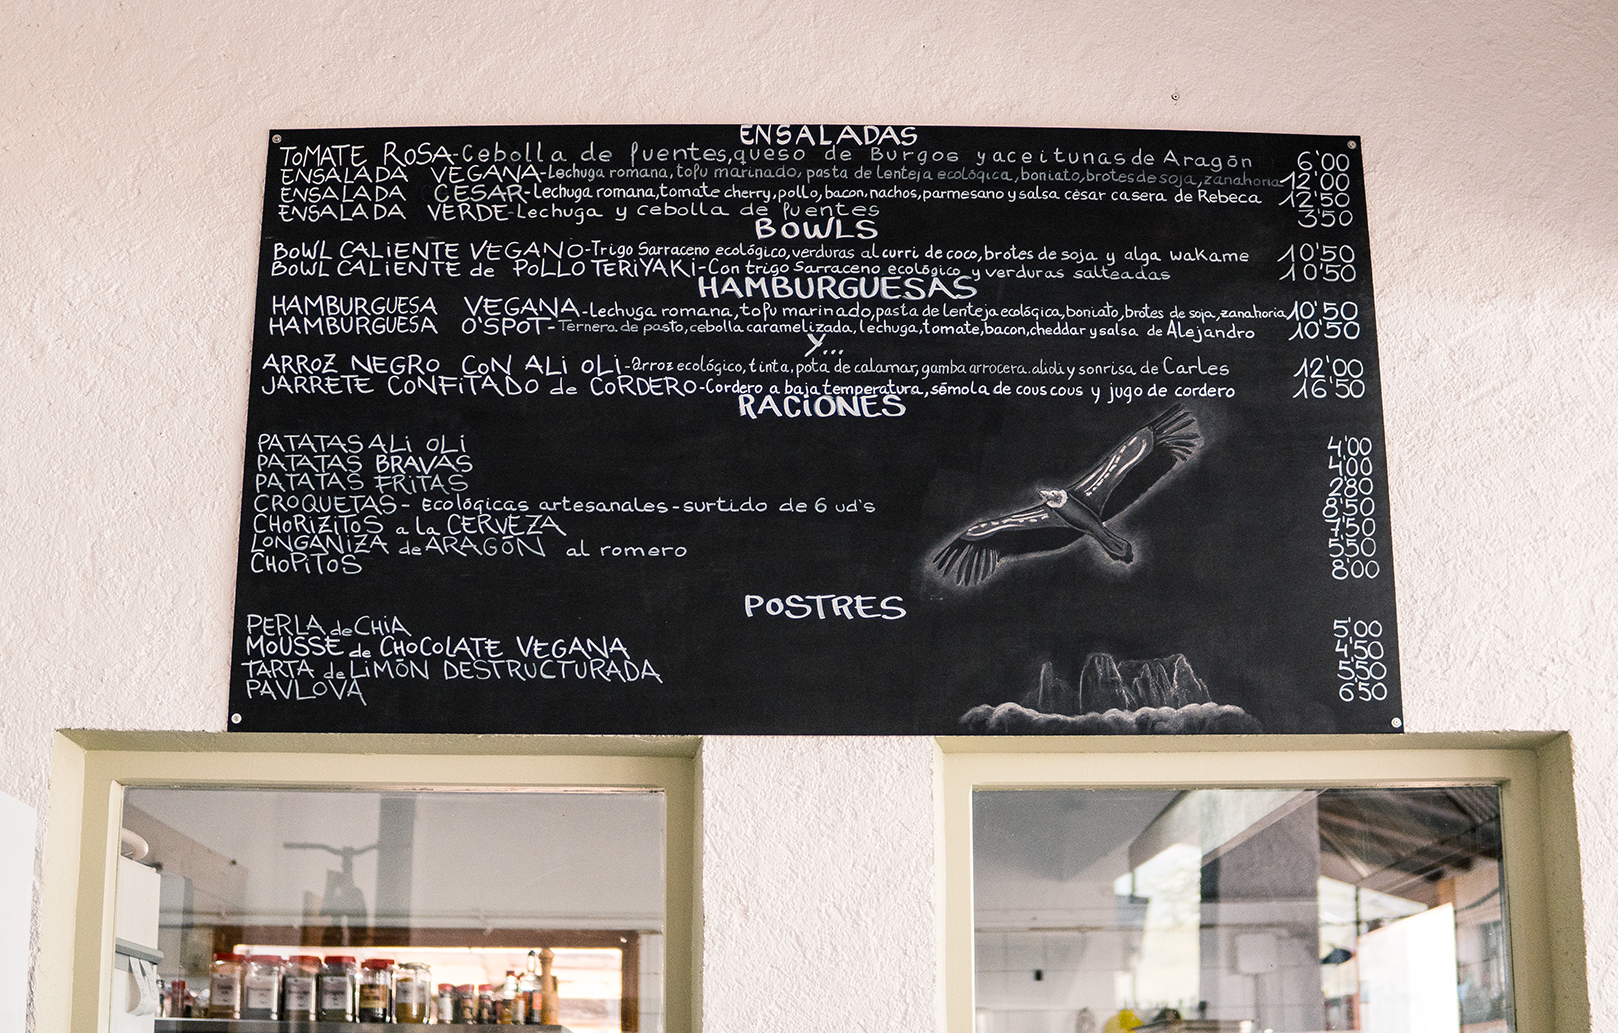 ENSALADAS
TOMATE ROSA-Cebolla de fuentes,queso de Burgos y aceitunas de Aragón 6'00
ENSALADA VEGANA-Lechuga romana,tofu marinado,pasta de lenteja ecológica,boniato,brotes de soja,zanahoria 12'00
ENSALADA CÉSAR-lechuga romana,tomate cherry,pollo,bacon,nachos,parmesano y salsa césar casera de Rebeca 12'50
ENSALADA VERDE-Lechuga y cebolla de fuentes 3'50
BOWLS
BOWL CALIENTE VEGANO-Trigo Sarraceno ecológico,verduras al curri de coco,brotes de soja y alga wakame 10'50
BOWL CALIENTE de POLLO TERIYAKI-Con trigo Sarraceno ecológico y verduras salteadas 10'50
HAMBURGUESAS
HAMBURGUESA VEGANA-Lechuga romana,tofu marinado,pasta de lenteja ecológica,boniato,brotes de soja,zanahoria 10'50
HAMBURGUESA O'SPOT-Ternera de pasto,cebolla caramelizada,lechuga,tomate,bacon,cheddar y salsa de Alejandro 10'50
Y...
ARROZ NEGRO CON ALI OLI-arroz ecológico,tinta,pota de calamar,gamba arrocera.alioli y sonrisa de Carles 12'00
JARRETE CONFITADO de CORDERO-Cordero a baja temperatura,sémola de cous cous y jugo de cordero 16'50
RACIONES
PATATAS ALI OLI 4'00
PATATAS BRAVAS 4'00
PATATAS FRITAS 2'80
CROQUETAS-Ecológicas artesanales-surtido de 6 ud's 8'50
CHORIZITOS a la CERVEZA 7'50
LONGANIZA de ARAGÓN al romero 5'50
CHOPITOS 8'00
POSTRES
PERLA de CHIA 5'00
MOUSSE de CHOCOLATE VEGANA 4'50
TARTA de LIMÓN DESTRUCTURADA 5'50
PAVLOVA 6'50